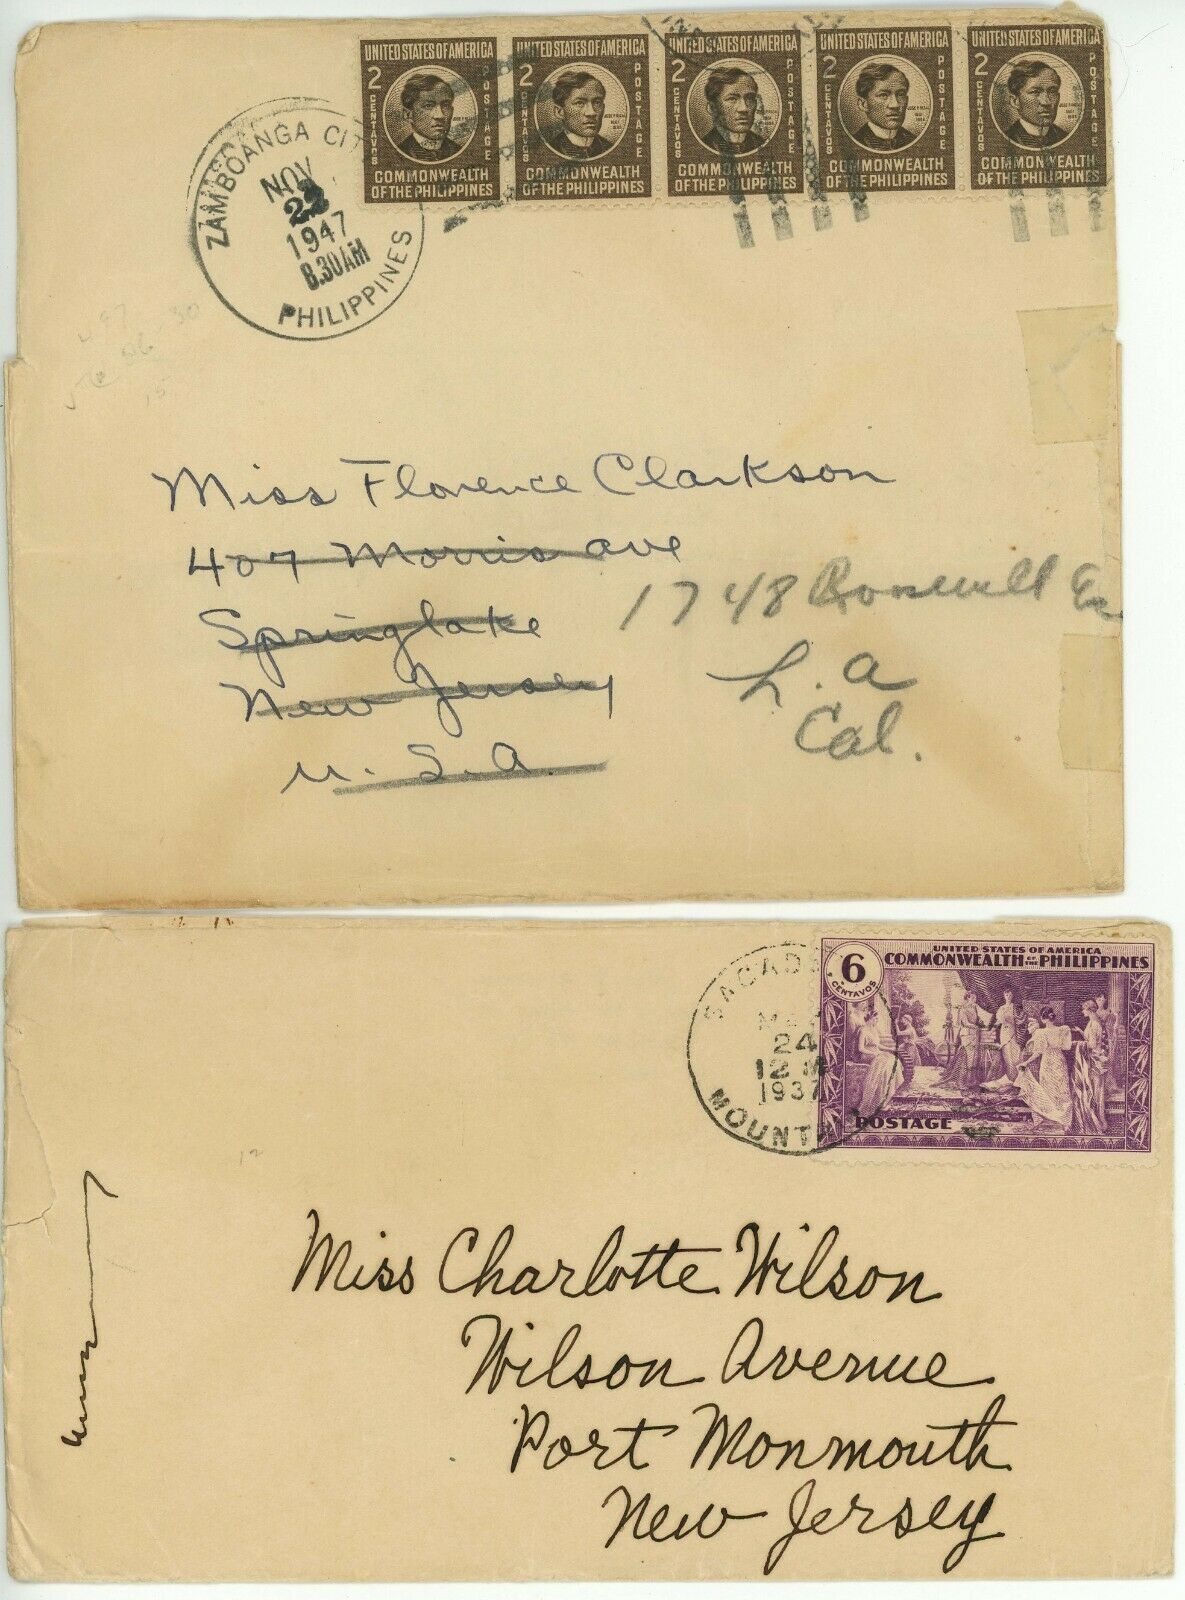 UNITED STATES OF AMERICA UNITED STATES OF AMERICA UNITED STATES OF AMERICA UNITED STATES OF AMERICA UNITED STATES OF AMERICA
2 CENTAVOS POSTAGE 2 CENTAVOS POSTAGE 2 CENTAVOS POSTAGE 2 CENTAVOS POSTAGE 2 CENTAVOS POSTAGE
COMMONWEALTH COMMONWEALTH COMMONWEALTH COMMONWEALTH COMMONWEALTH
OF THE PHILIPPINES OF THE PHILIPPINES OF THE PHILIPPINES OF THE PHILIPPINES OF THE PHILIPPINES
ZAMBOANGA CIT
NOV
1947
8.30AM
PHILIPPINES
Miss Florence Clarkson
407 Morris ave
Springlake
New Jersey
U. S. A.
1748
L. A
Cal.
UNITED STATES OF AMERICA
COMMONWEALTH OF THE PHILIPPINES
6
CENTAVOS
POSTAGE
SAGADA
24
12 M
1937
MOUNT
Miss Charlotte Wilson
Wilson Avenue
Port Monmouth
New Jersey